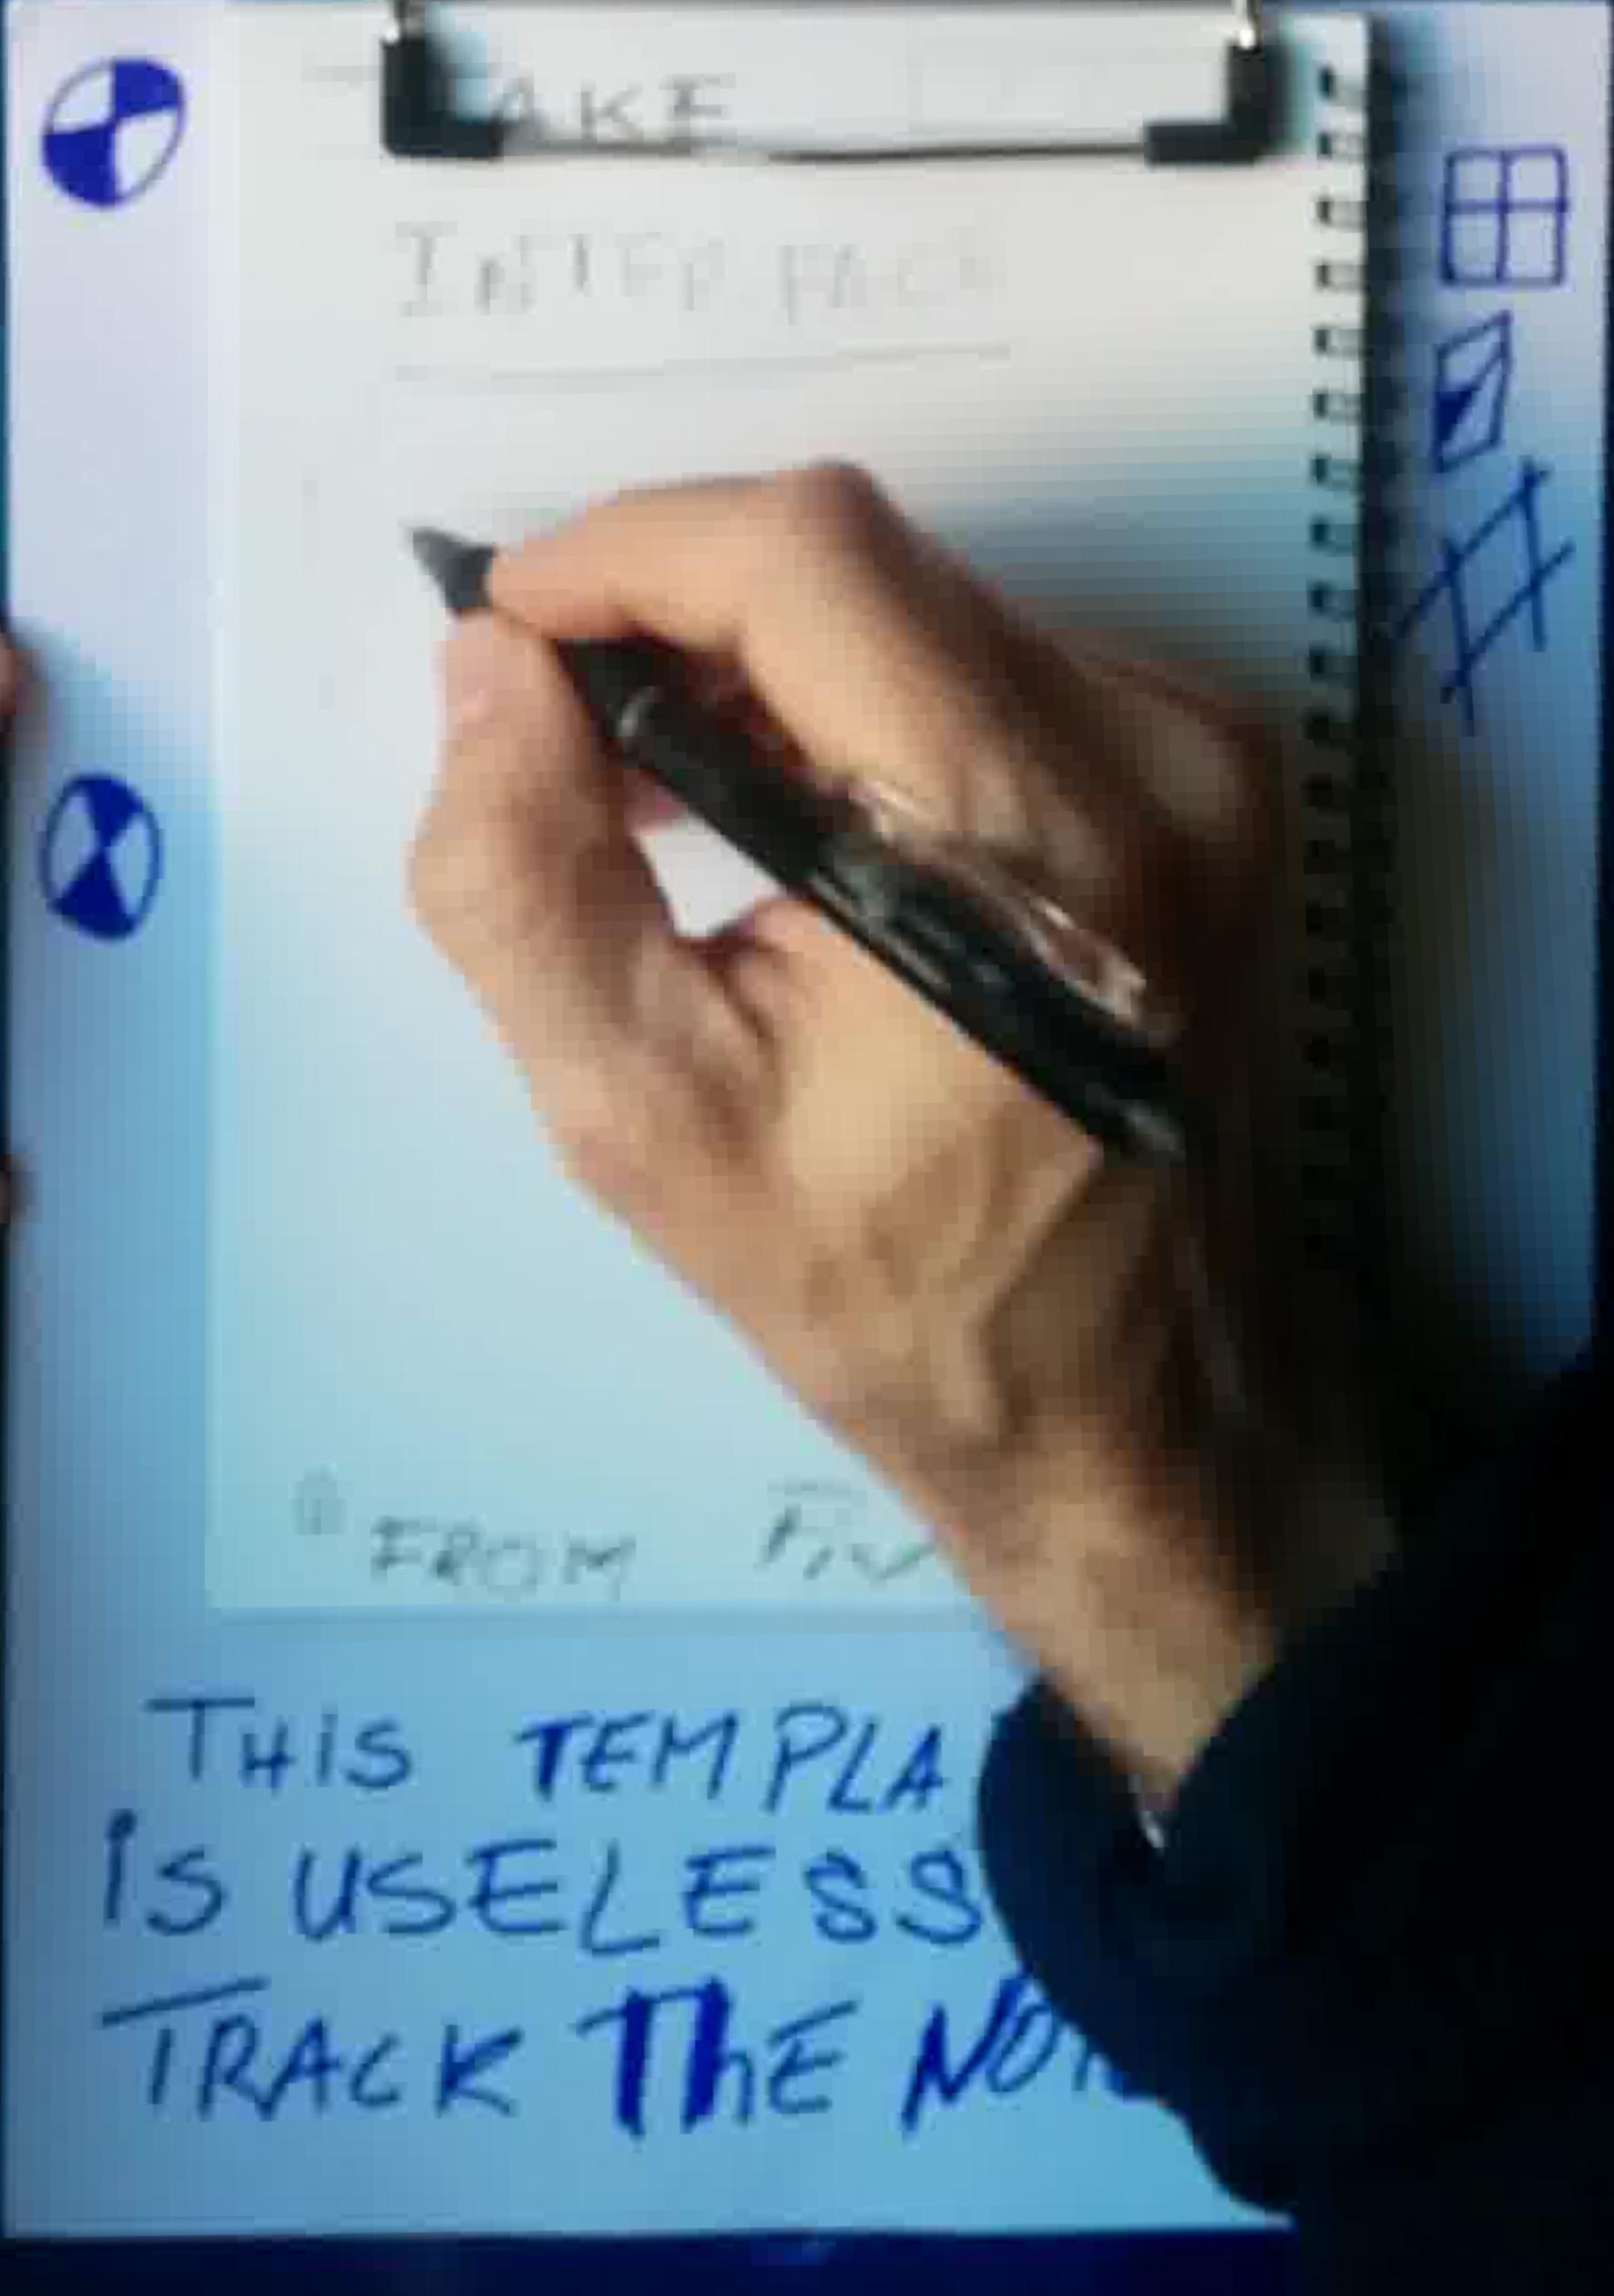 AKE
INTERFACE
FROM
THIS TEMPLA
iS USELESS
TRACK THE NO